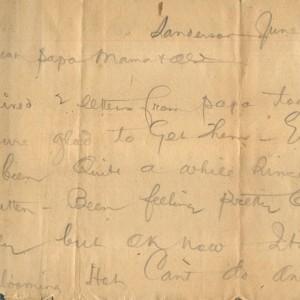 Sanderson June
ear Papa Mama & all
ived 2 letters from papa tod
ure glad to Get them - E
been Quite a while Since
tten - Been feeling pretty
but OK now It
looming Hot Cant do an